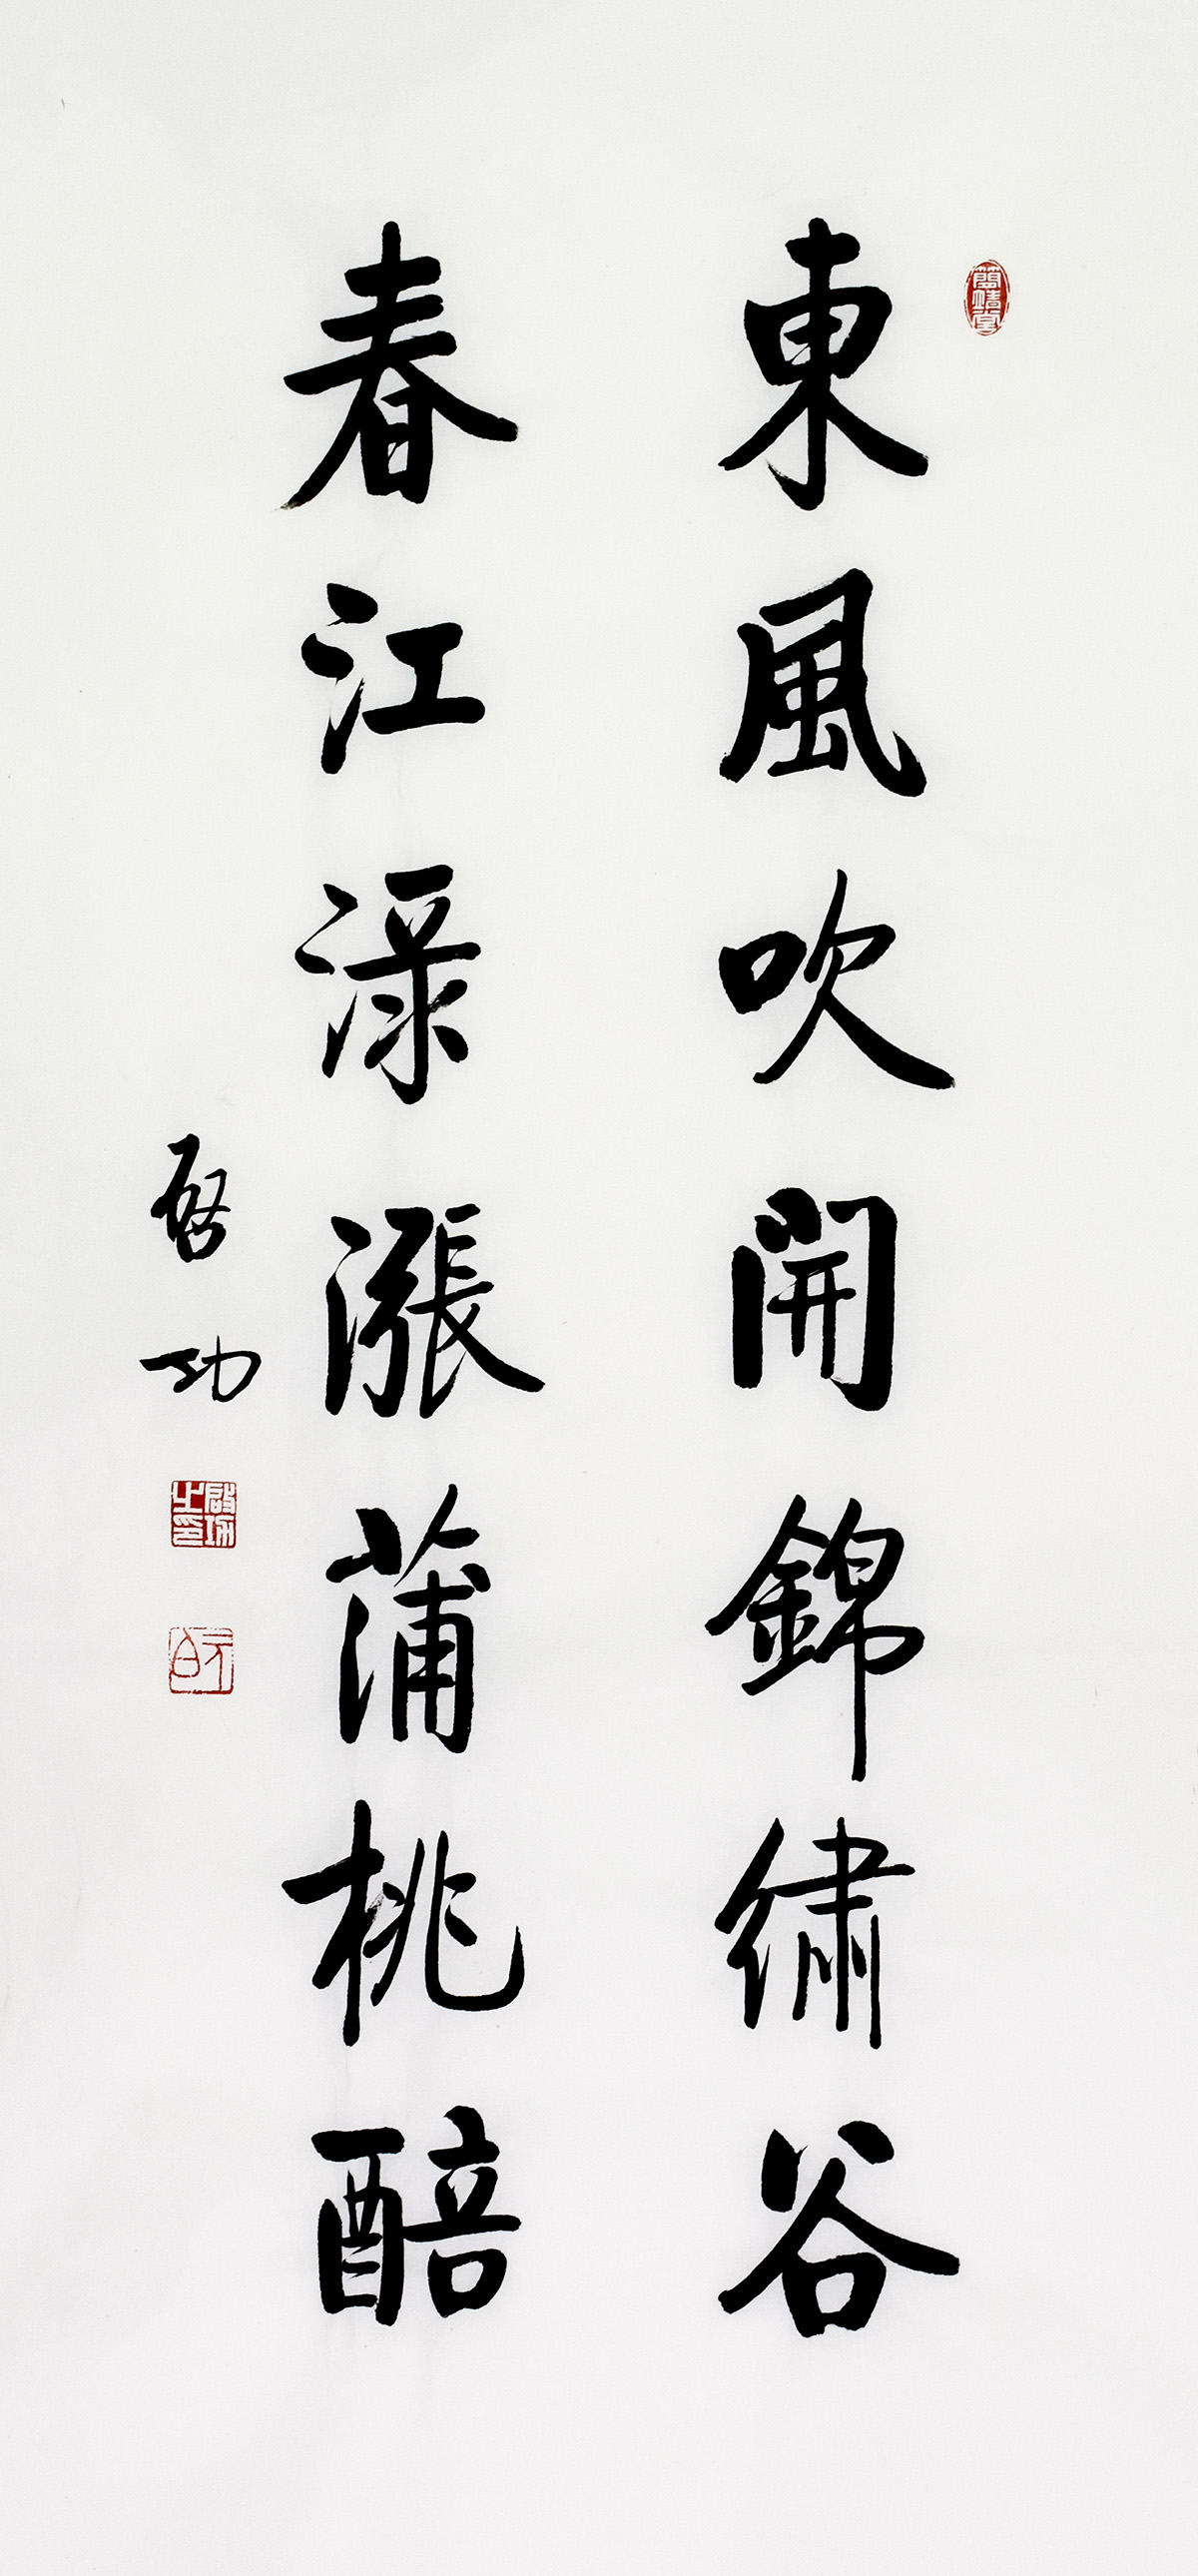 東風吹開錦繡谷
春江渌漲蒲桃醅
啓功
簡靖堂
啟功之印
元白